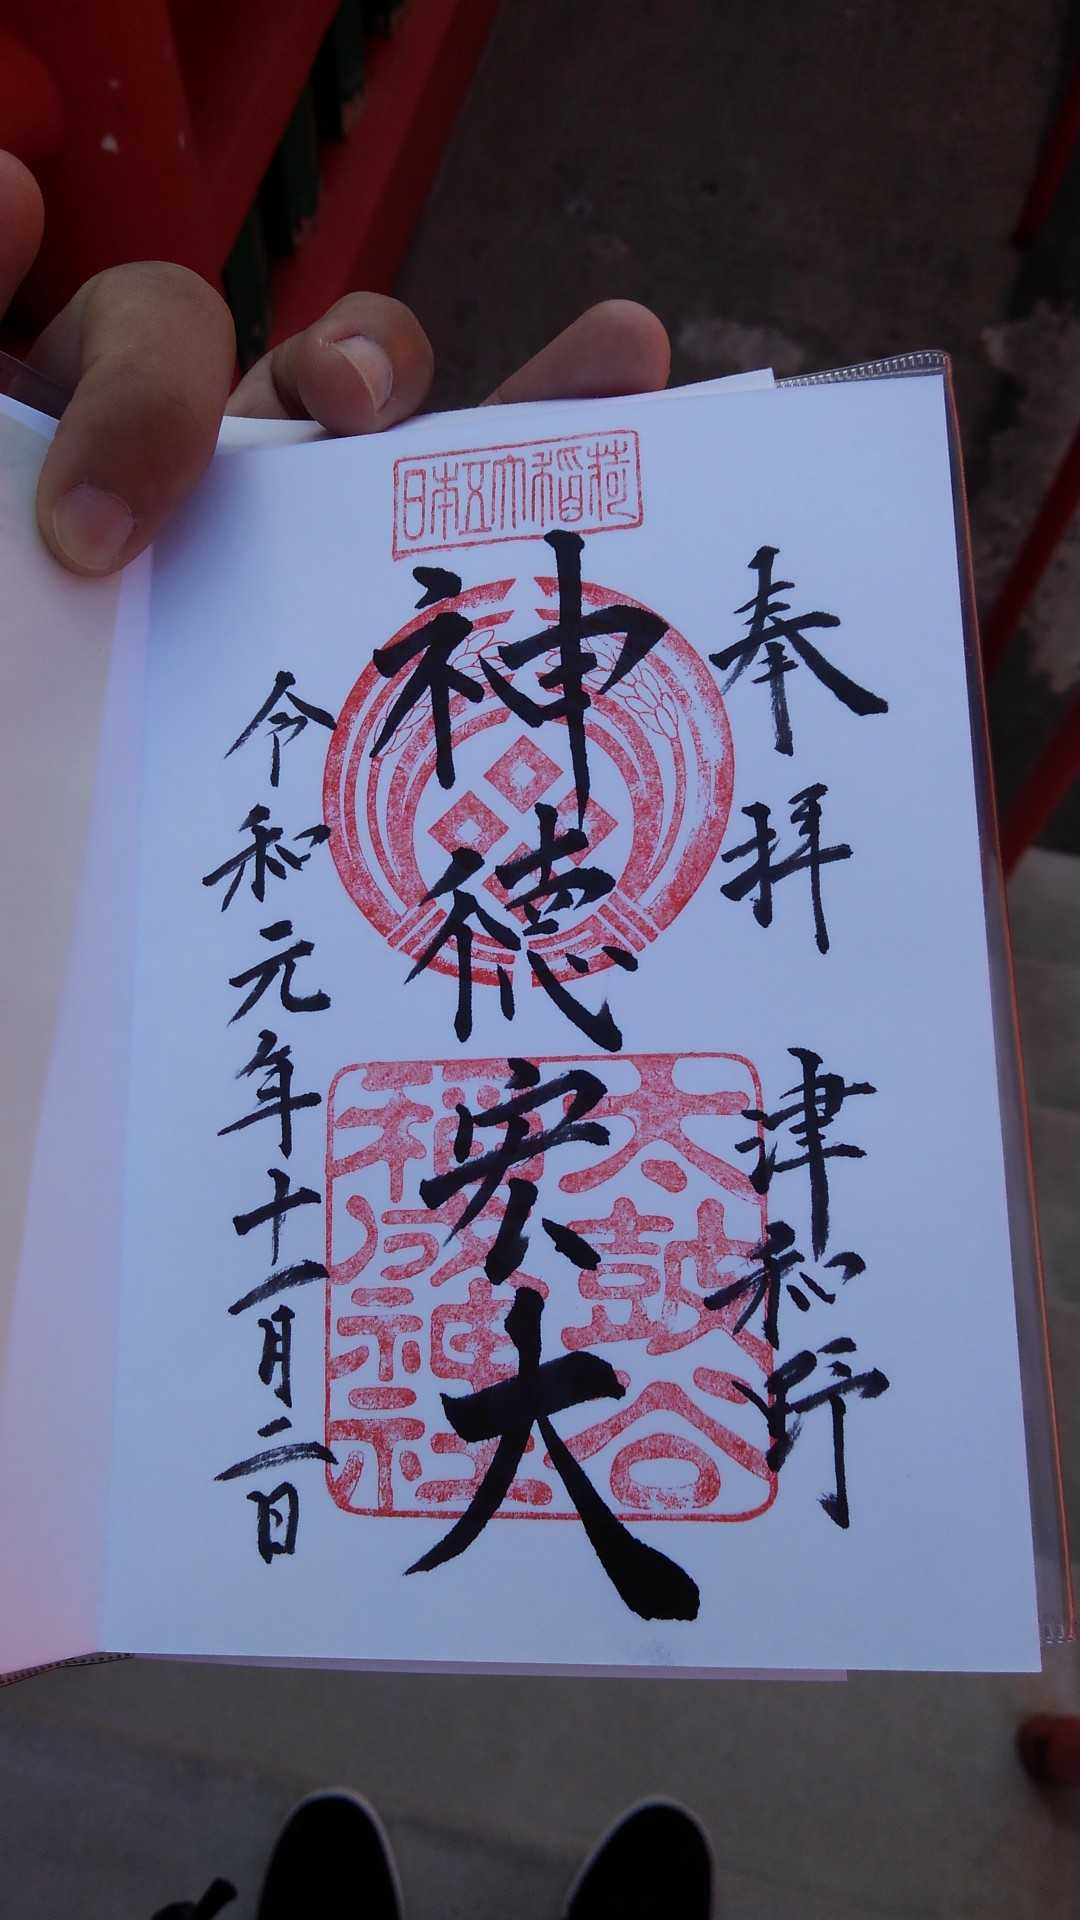 奉拝 津和野
日本五大稲荷
神徳宏大
太鼓谷
稲成神社
令和元年十一月二日